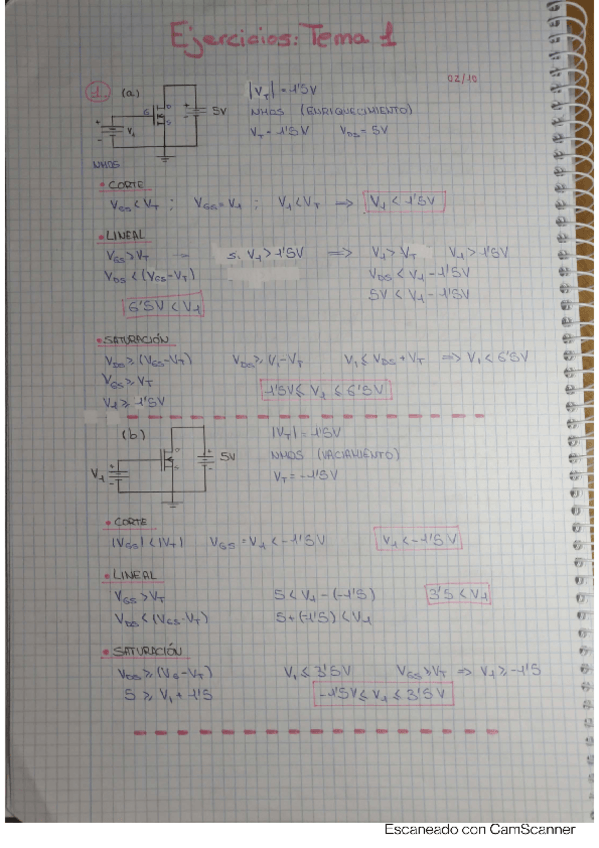 Ejercicios: Tema 1
02/10
1 (a) |V_T| = 1'5V
G D S + 5V NMOS (ENRIQUECIMIENTO)
+ - V1 V_T = 1'5V V_DS = 5V
NMOS
• CORTE
V_GS < V_T ; V_GS = V1 ; V1 < V_T ⇒ V1 < 1'5V
• LINEAL
V_GS > V_T → si V1 > 1'5V ⇒ V1 > V_T V1 > 1'5V
V_DS < (V_GS - V_T) V_DS < V1 - 1'5V
5V < V1 - 1'5V
6'5V < V1
• SATURACIÓN
V_DS ≥ (V_GS - V_T) V_DS ≥ V1 - V_T V1 ≤ V_DS + V_T ⇒ V1 < 6'5V
V_GS ≥ V_T
1'5V ≤ V1 ≤ 6'5V
V1 ≥ 1'5V
(b) |V_T| = 1'5V
D S + - 5V NMOS (VACIAMIENTO)
V1 + - V_T = -1'5V
• CORTE
|V_GS| < |V_T| V_GS = V1 < -1'5V V1 < -1'5V
• LINEAL
V_GS > V_T 5 < V1 - (-1'5) 3'5 < V1
V_DS < (V_GS - V_T) 5 + (-1'5) < V1
• SATURACIÓN
V_DS ≥ (V_GS - V_T) V1 ≤ 3'5V V_GS ≥ V_T ⇒ V1 ≥ -1'5
5 ≥ V1 + 1'5 -1'5V ≤ V1 ≤ 3'5V
Escaneado con CamScanner